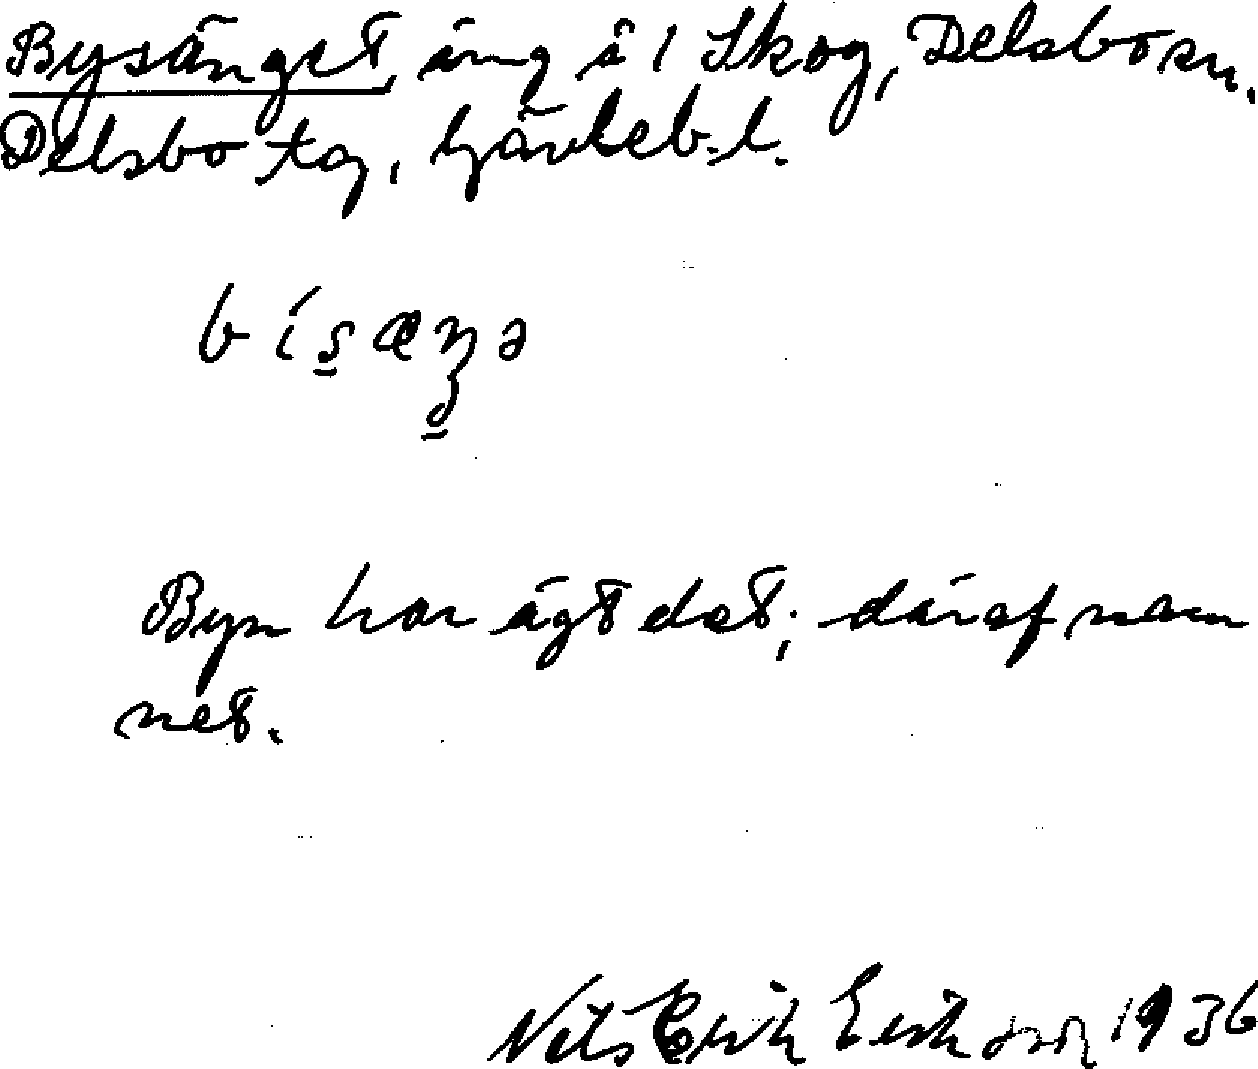 Bysänget, äng å 1 Skog, Delsbo sn.
Delsbo tg, Gävleb. l.
Byn har ägt det; däraf nam
net.
Nils Erik Eriksson 1936